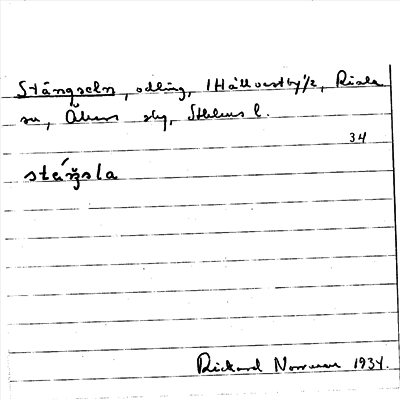 Stängseln, odling, 1 Hållvestby 1/2, Riala
sn, Åkers skg, Sthlms l.
34
stáŋsla
Rickard Norrman 1934.